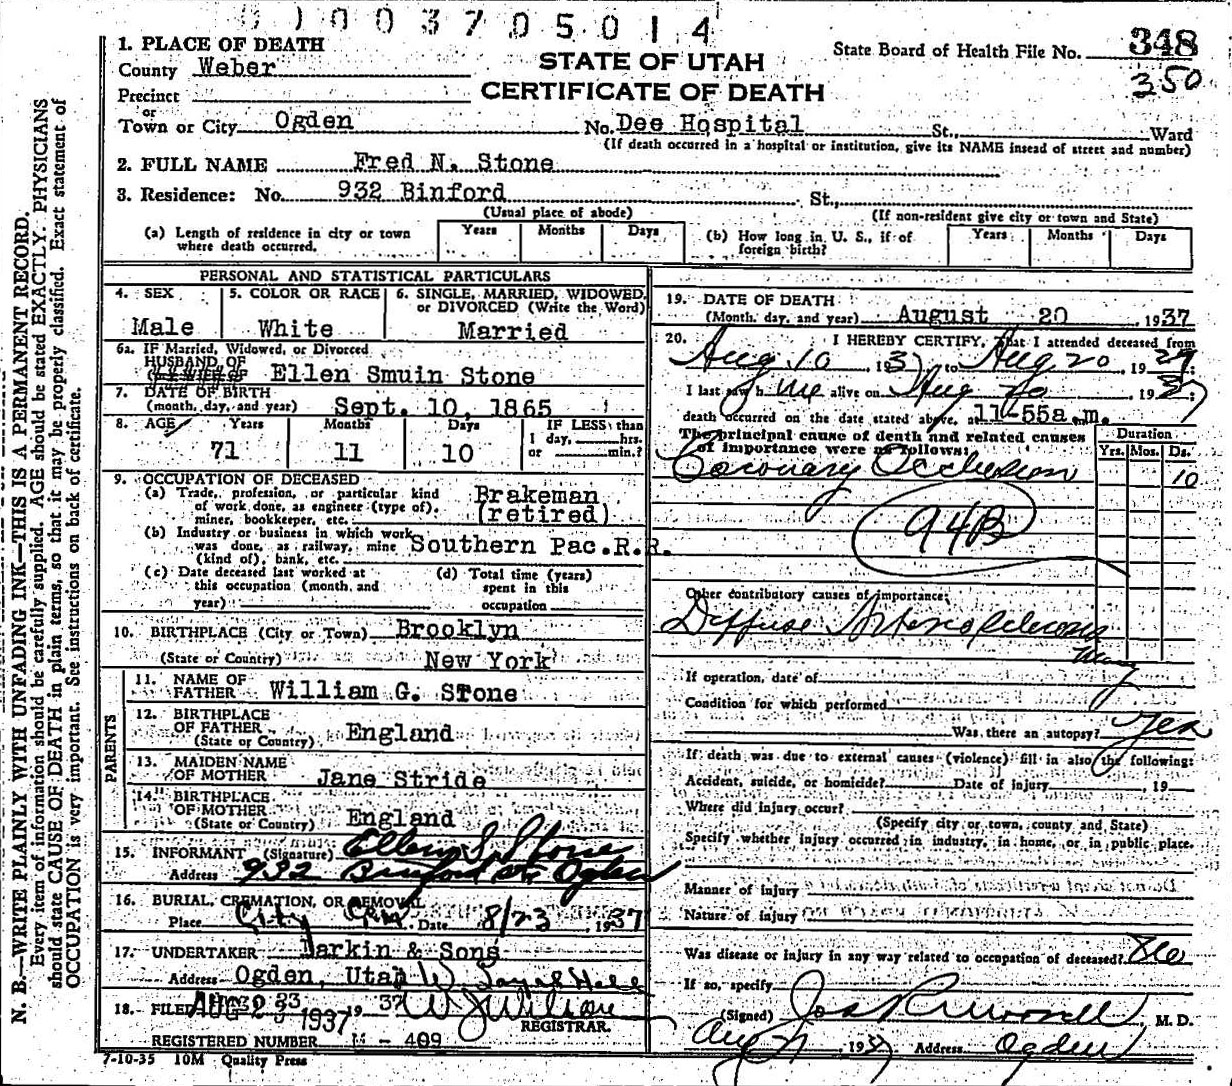 0 0 3 7 0 5 0 1 4
1. PLACE OF DEATH
County Weber
Precinct
or
Town or City Ogden
STATE OF UTAH
CERTIFICATE OF DEATH
State Board of Health File No. 348
350
No. Dee Hospital St., Ward
(If death occurred in a hospital or institution, give its NAME insead of street and number)
2. FULL NAME Fred N. Stone
3. Residence: No. 932 Binford St.,
(Usual place of abode) (If non-resident give city or town and State)
(a) Length of residence in city or town where death occurred. Years Months Days
(b) How long in U. S., if of foreign birth? Years Months Days
PERSONAL AND STATISTICAL PARTICULARS
4. SEX 5. COLOR OR RACE 6. SINGLE, MARRIED, WIDOWED, or DIVORCED (Write the Word)
Male White Married
6a. IF Married, Widowed, or Divorced
HUSBAND OF
Ellen Smuin Stone
7. DATE OF BIRTH
(month, day, and year) Sept. 10, 1865
8. AGE Years Months Days IF LESS than
1 day, hrs.
or min.?
71 11 10
9. OCCUPATION OF DECEASED
(a) Trade, profession, or particular kind of work done, as engineer (type of), miner, bookkeeper, etc. Brakeman (retired)
(b) Industry or business in which work was done, as railway, mine (kind of), bank, etc. Southern Pac. R.R.
(c) Date deceased last worked at this occupation (month, and year)
(d) Total time (years) spent in this occupation
10. BIRTHPLACE (City or Town) Brooklyn
(State or Country) New York
PARENTS
11. NAME OF FATHER William G. Stone
12. BIRTHPLACE OF FATHER
(State or Country) England
13. MAIDEN NAME OF MOTHER Jane Stride
14. BIRTHPLACE OF MOTHER
(State or Country) England
15. INFORMANT (Signature) Ellen S. Stone
Address 932 Binford St. Ogden
16. BURIAL, CREMATION, OR REMOVAL
Place City Cem. Date 8/23, 1937
17. UNDERTAKER Larkin & Sons
Address Ogden, Utah
18. FILED AUG 23 1937 19 37
REGISTRAR.
REGISTERED NUMBER M - 409
7-10-35 10M Quality Press
19. DATE OF DEATH
(Month, day, and year) August 20, 1937
20. I HEREBY CERTIFY, That I attended deceased from
Aug 10, 1937 to Aug 20, 1937:
I last saw him alive on Aug 20, 1937:
death occurred on the date stated above, at 11-55 a.m.
The principal cause of death and related causes of importance were as follows:
Duration
Yrs. Mos. Ds.
Coronary Occlusion 10
94B
Other contributory causes of importance:
Diffuse Arteriosclerosis
If operation, date of
Condition for which performed
Was there an autopsy? Yes
If death was due to external causes (violence) fill in also the following:
Accident, suicide, or homicide? Date of injury, 19
Where did injury occur?
(Specify city or town, county and State)
Specify whether injury occurred in industry, in home, or in public place.
Manner of injury
Nature of injury
Was disease or injury in any way related to occupation of deceased? No
If so, specify
(Signed) M. D.
Aug 21 1937 Address Ogden
N. B.—WRITE PLAINLY WITH UNFADING INK—THIS IS A PERMANENT RECORD.
Every item of information should be carefully supplied. AGE should be stated EXACTLY. PHYSICIANS
should state CAUSE OF DEATH in plain terms, so that it may be properly classified. Exact statement of
OCCUPATION is very important. See instructions on back of certificate.